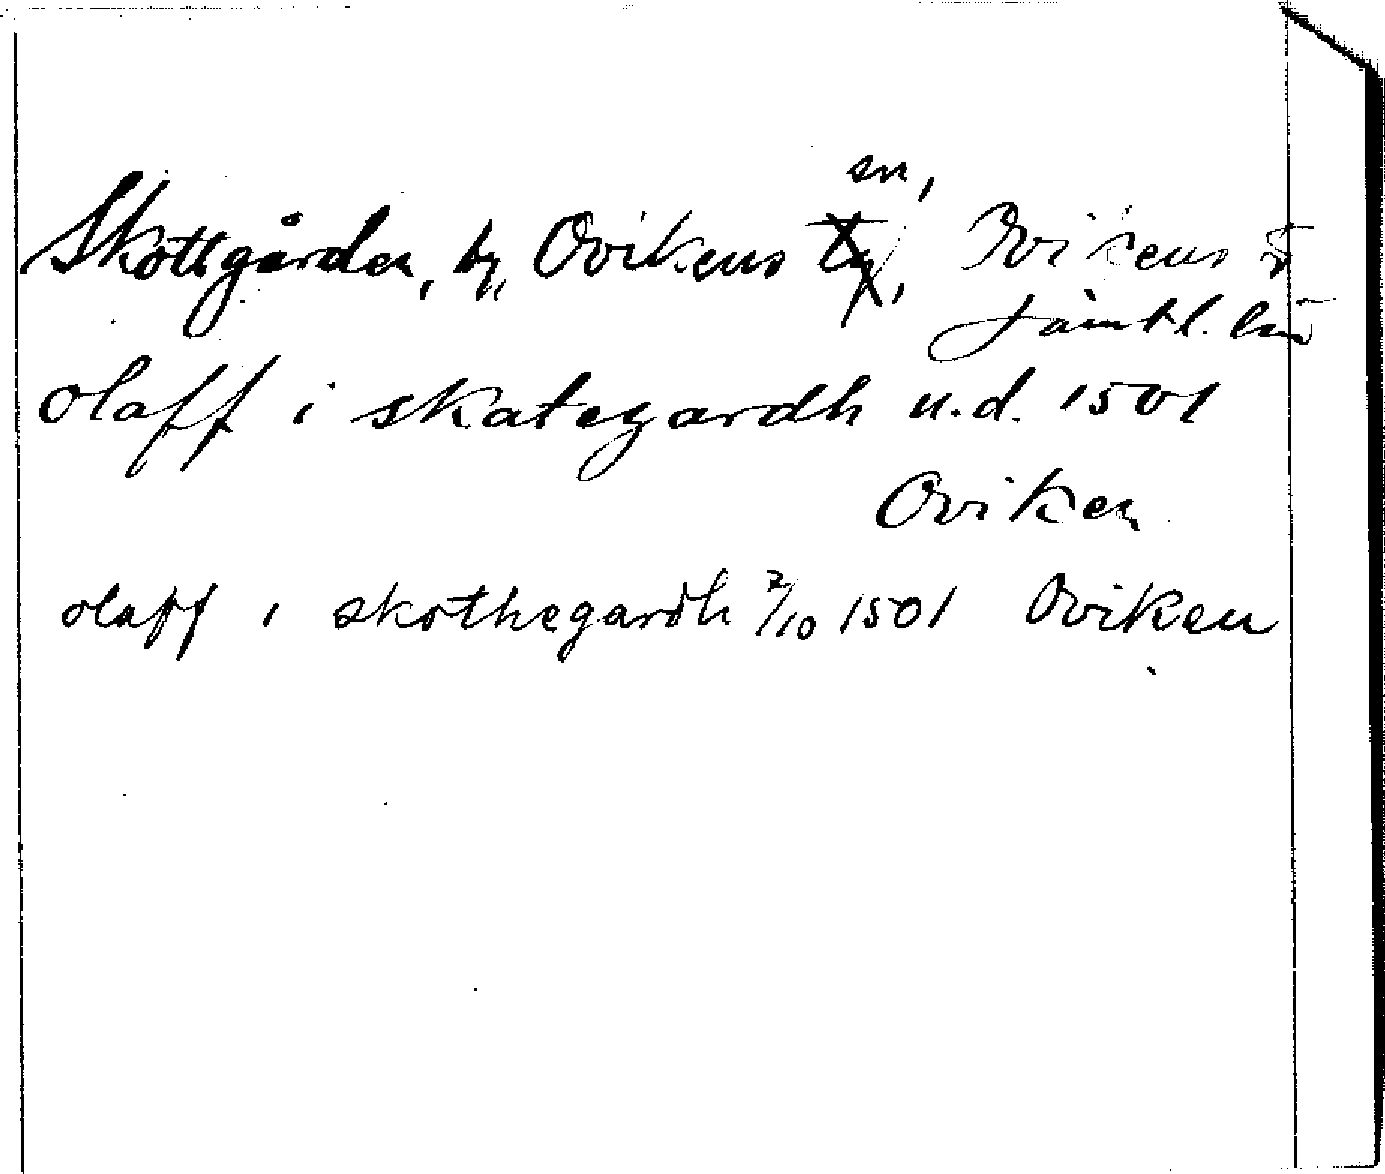 Skottgården, by, Ovikens sn, Ovikens
Jämtl. län
olaff i skategardh u.d. 1501
Oviken
olaff i skothegardh 7/10 1501 Oviken